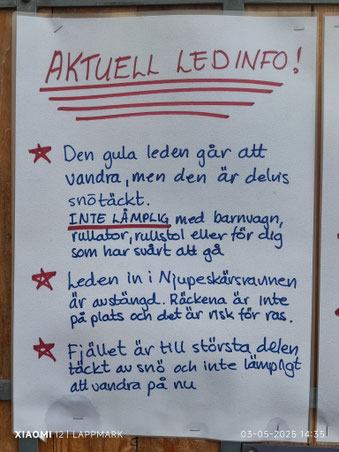 AKTUELL LEDINFO!
Den gula leden går att
vandra, men den är delvis
snötäckt.
INTE LÄMPLIG med barnvagn,
rullator, rullstol eller för dig
som har svårt att gå
Leden in i Njupeskärsravinen
är avstängd. Räckena är inte
på plats och det är risk för ras.
Fjället är till största delen
täckt av snö och inte lämpligt
att vandra på nu
XIAOMI 12 | LAPPMARK
03-05-2025 14:35